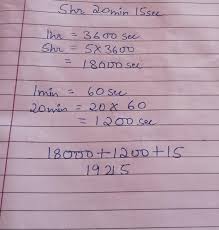 5hr 20min 15sec
1hr = 3600sec
5hr = 5×3600
= 18000sec
1min = 60sec
20min = 20×60
= 1200sec
18000+1200+15
19215